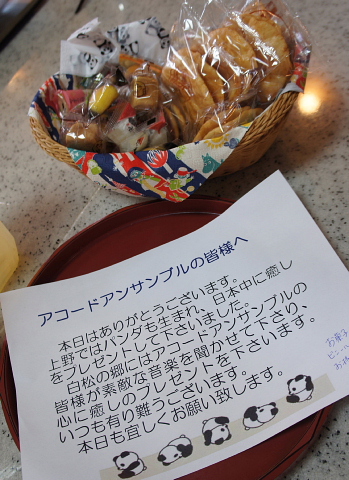 アコードアンサンブルの皆様へ
本日はありがとうございます。
上野ではパンダも生まれ、日本中に癒し
をプレゼントして下さいました。
白松の郷にはアコードアンサンブルの
皆様が素敵な音楽を聞かせて下さり、
心に癒しのプレゼントを下さいます。
いつも有り難うございます。
本日も宜しくお願い致します。
お菓子